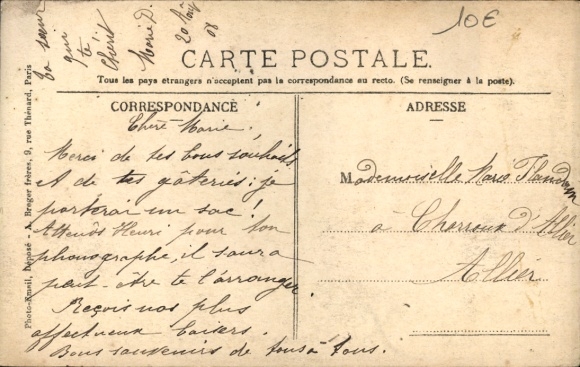 Ta sœur
qui
te
Chérit
Marie D.
20 Août
08
10€
CARTE POSTALE.
Tous les pays étrangers n'acceptent pas la correspondance au recto. (Se renseigner à la poste).
CORRESPONDANCE
ADRESSE
Photo-Email, Déposé - A. Breger frères, 9, rue Thénard, Paris
Chère Marie,
Merci de tes bons souhaits
et de tes gâteries; je
porterai un sac!
Attends Henri pour ton
phonographe, il saura
peut-être te l'arranger.
Reçois nos plus
affectueux baisers.
Bons souvenirs de tous à tous.
Mademoiselle Marie
à Charroux d'Allier
Allier